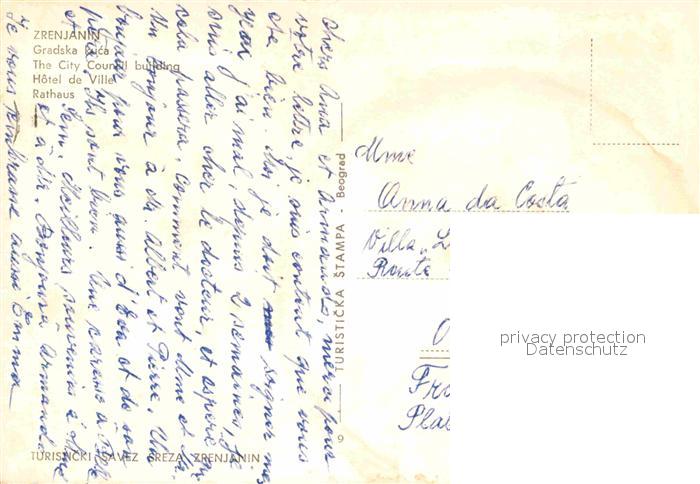 ZRENJANIN
Gradska kuća
The City Council building
Hôtel de Ville
Rathaus
Chers Anna et Armando, merci pour
votre lettre, je suis content que vous
ete bien. Moi je doit soigner mes
yeux j'ai mal, depuis 2 semaines, je
suis aller chez le docteur, et espère que
cela passera. Comment vont
Un bonjour à Albert et Pierre. Un
bonjour pour vous aussi d'Eva et de son
père. Ils sont bien. Une caresse à
et Meilleurs souvenirs à
et à Bonjour à Armando
Je vous embrasse aussi Emma
TURISTIČKA ŠTAMPA - Beograd
9
TURISTIČKI SAVEZ SREZA ZRENJANIN
Mme
Anna da Costa
Villa
Route
privacy protection
Datenschutz